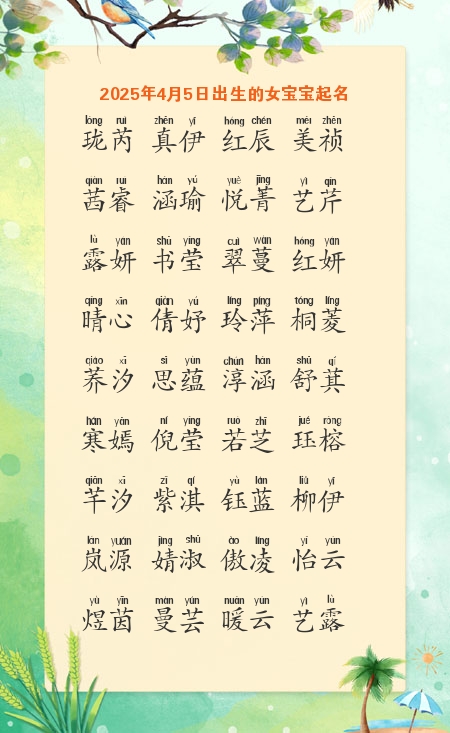 2025年4月5日出生的女宝宝起名
lóng ruì zhēn yī hóng chén měi zhēn
珑芮 真伊 红辰 美祯
qiàn ruì hán yú yuè jīng yì qín
茜睿 涵瑜 悦菁 艺芹
lù yán shū yíng cuì wàn hóng yán
露妍 书莹 翠蔓 红妍
qíng xīn qiàn yú líng píng tóng líng
晴心 倩妤 玲萍 桐菱
qiáo xī sī yùn chún hán shū qí
荞汐 思蕴 淳涵 舒萁
hán yān ní yíng ruò zhī jué róng
寒嫣 倪莹 若芝 珏榕
qiān xī zǐ qí yù lán liǔ yī
芊汐 紫淇 钰蓝 柳伊
lán yuán jìng shū ào líng yí yún
岚源 婧淑 傲凌 怡云
yù yīn màn yún nuǎn yún yì lù
煜茵 曼芸 暖云 艺露